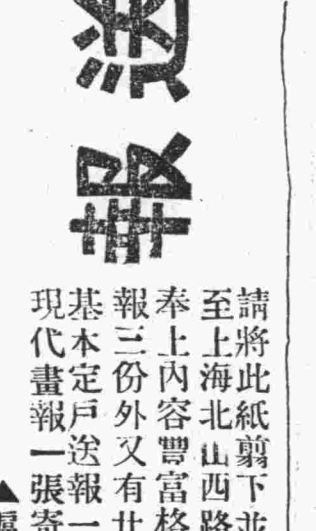 送報
請將此紙剪下
至上海北山西路
奉上內容豐富格
報三份外又有廿
基本定戶送報一
現代畫報一張寄
▲